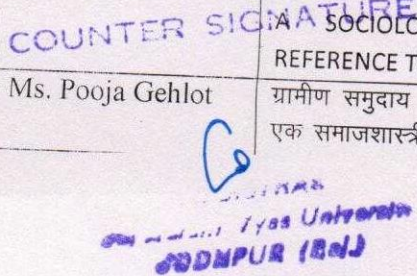 COUNTER SIGNATURE
A SOCIOLO
REFERENCE T
Ms. Pooja Gehlot
ग्रामीण समुदाय
एक समाजशास्त्री
Vyas University
JODHPUR (Raj.)